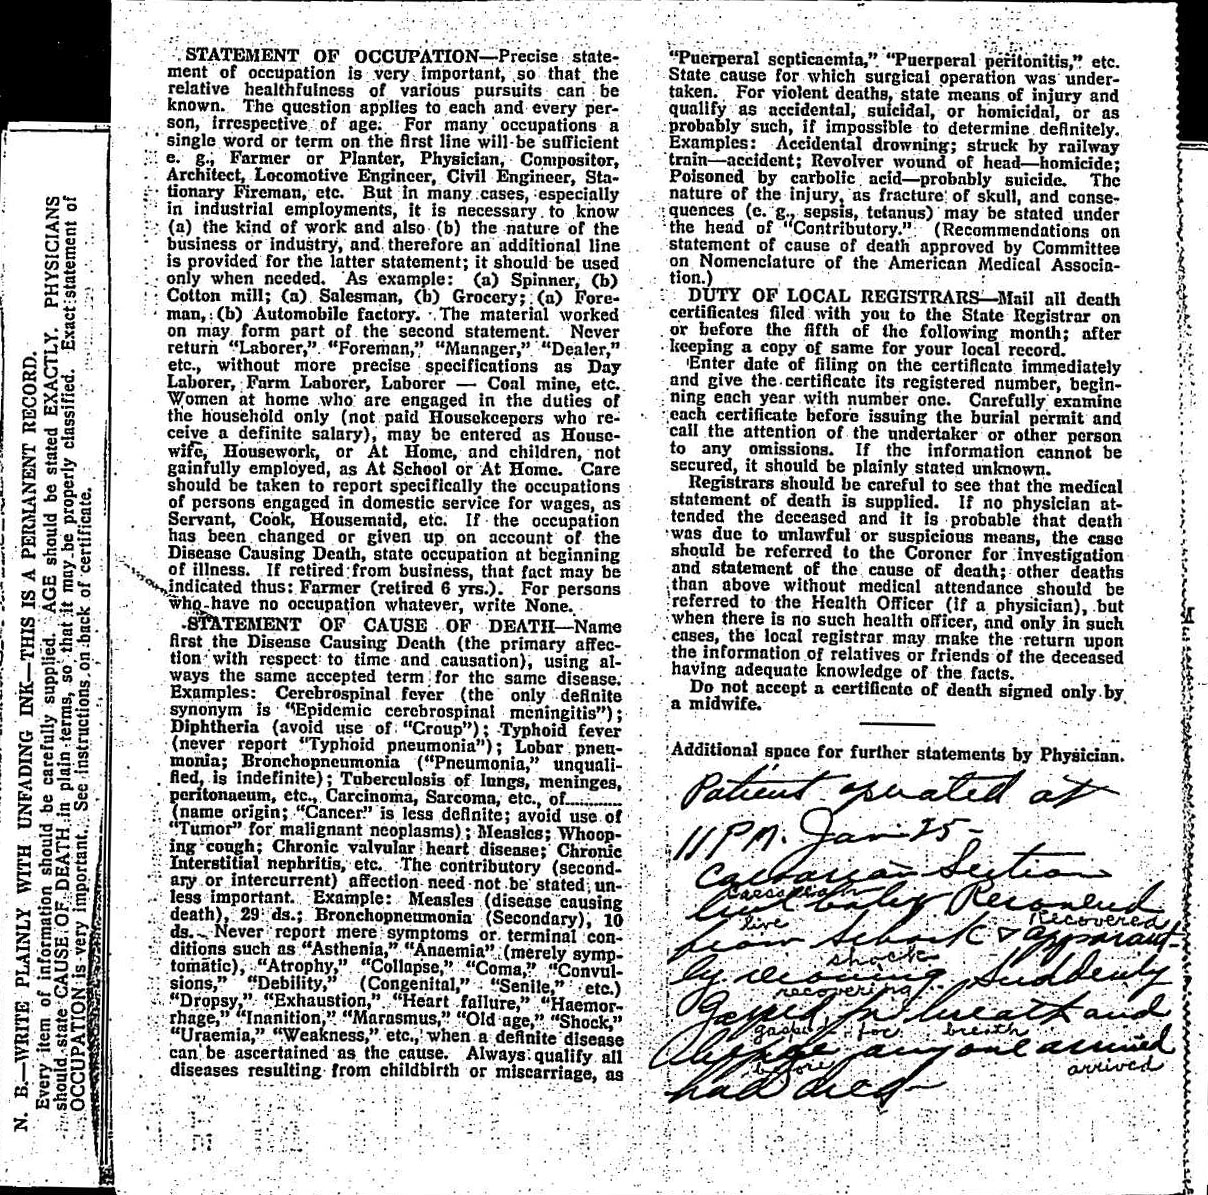 N. B.—WRITE PLAINLY WITH UNFADING INK—THIS IS A PERMANENT RECORD.
Every item of information should be carefully supplied. AGE should be stated EXACTLY. PHYSICIANS
should state CAUSE OF DEATH in plain terms, so that it may be properly classified. Exact statement of
OCCUPATION is very important. See instructions on back of certificate.
STATEMENT OF OCCUPATION—Precise state-
ment of occupation is very important, so that the
relative healthfulness of various pursuits can be
known. The question applies to each and every per-
son, irrespective of age. For many occupations a
single word or term on the first line will be sufficient
e. g., Farmer or Planter, Physician, Compositor,
Architect, Locomotive Engineer, Civil Engineer, Sta-
tionary Fireman, etc. But in many cases, especially
in industrial employments, it is necessary to know
(a) the kind of work and also (b) the nature of the
business or industry, and therefore an additional line
is provided for the latter statement; it should be used
only when needed. As example: (a) Spinner, (b)
Cotton mill; (a) Salesman, (b) Grocery; (a) Fore-
man, (b) Automobile factory. The material worked
on may form part of the second statement. Never
return "Laborer," "Foreman," "Manager," "Dealer,"
etc., without more precise specifications as Day
Laborer, Farm Laborer, Laborer — Coal mine, etc.
Women at home who are engaged in the duties of
the household only (not paid Housekeepers who re-
ceive a definite salary), may be entered as House-
wife, Housework, or At Home, and children, not
gainfully employed, as At School or At Home. Care
should be taken to report specifically the occupations
of persons engaged in domestic service for wages, as
Servant, Cook, Housemaid, etc. If the occupation
has been changed or given up on account of the
Disease Causing Death, state occupation at beginning
of illness. If retired from business, that fact may be
indicated thus: Farmer (retired 6 yrs.). For persons
who have no occupation whatever, write None.
STATEMENT OF CAUSE OF DEATH—Name
first the Disease Causing Death (the primary affec-
tion with respect to time and causation), using al-
ways the same accepted term for the same disease.
Examples: Cerebrospinal fever (the only definite
synonym is "Epidemic cerebrospinal meningitis");
Diphtheria (avoid use of "Croup"); Typhoid fever
(never report "Typhoid pneumonia"); Lobar pneu-
monia; Bronchopneumonia ("Pneumonia," unquali-
fied, is indefinite); Tuberculosis of lungs, meninges,
peritonaeum, etc., Carcinoma, Sarcoma, etc., of............
(name origin; "Cancer" is less definite; avoid use of
"Tumor" for malignant neoplasms); Measles; Whoop-
ing cough; Chronic valvular heart disease; Chronic
Interstitial nephritis, etc. The contributory (second-
ary or intercurrent) affection need not be stated un-
less important. Example: Measles (disease causing
death), 29 ds.; Bronchopneumonia (Secondary), 10
ds. Never report mere symptoms or terminal con-
ditions such as "Asthenia," "Anaemia" (merely symp-
tomatic), "Atrophy," "Collapse," "Coma," "Convul-
sions," "Debility," (Congenital," "Senile," etc.)
"Dropsy," "Exhaustion," "Heart failure," "Haemor-
rhage," "Inanition," "Marasmus," "Old age," "Shock,"
"Uraemia," "Weakness," etc., when a definite disease
can be ascertained as the cause. Always qualify all
diseases resulting from childbirth or miscarriage, as
"Puerperal septicaemia," "Puerperal peritonitis," etc.
State cause for which surgical operation was under-
taken. For violent deaths, state means of injury and
qualify as accidental, suicidal, or homicidal, or as
probably such, if impossible to determine definitely.
Examples: Accidental drowning; struck by railway
train—accident; Revolver wound of head—homicide;
Poisoned by carbolic acid—probably suicide. The
nature of the injury, as fracture of skull, and conse-
quences (e. g., sepsis, tetanus) may be stated under
the head of "Contributory." (Recommendations on
statement of cause of death approved by Committee
on Nomenclature of the American Medical Associa-
tion.)
DUTY OF LOCAL REGISTRARS—Mail all death
certificates filed with you to the State Registrar on
or before the fifth of the following month; after
keeping a copy of same for your local record.
Enter date of filing on the certificate immediately
and give the certificate its registered number, begin-
ning each year with number one. Carefully examine
each certificate before issuing the burial permit and
call the attention of the undertaker or other person
to any omissions. If the information cannot be
secured, it should be plainly stated unknown.
Registrars should be careful to see that the medical
statement of death is supplied. If no physician at-
tended the deceased and it is probable that death
was due to unlawful or suspicious means, the case
should be referred to the Coroner for investigation
and statement of the cause of death; other deaths
than above without medical attendance should be
referred to the Health Officer (if a physician), but
when there is no such health officer, and only in such
cases, the local registrar may make the return upon
the information of relatives or friends of the deceased
having adequate knowledge of the facts.
Do not accept a certificate of death signed only by
a midwife.
Additional space for further statements by Physician.
Patient operated at
11 P.M. Jan 25-
Caesarian Section
Caesarean
live baby Recovered
live Recovered
from shock & apparant-
shock
ly recovering. Suddenly
recovering
Gasped for breath and
gasped for breath
before anyone arrived
before arrived
had died-